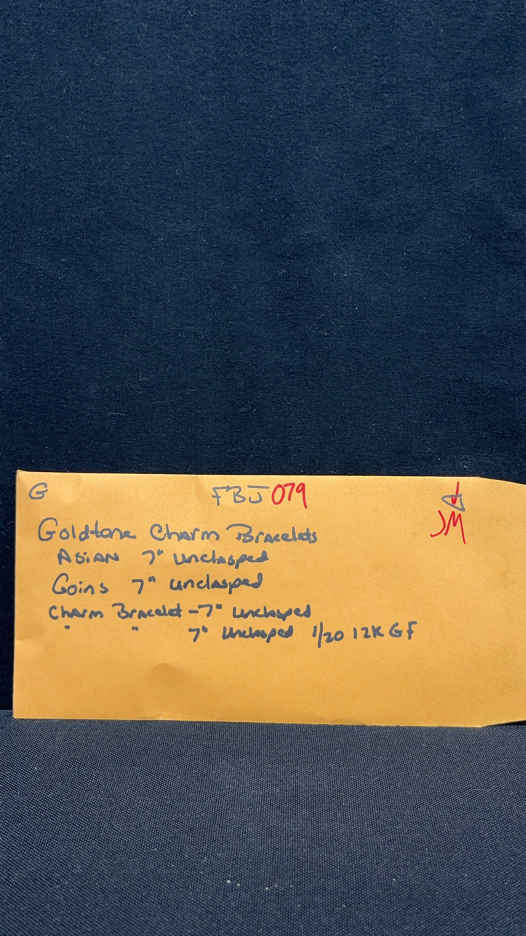 G FBJ 079
JM
Goldtone Charm Bracelets
ASIAN 7" Unclasped
Coins 7" unclasped
Charm Bracelet - 7" Unclasped
" " 7" Unclasped 1/20 12K GF